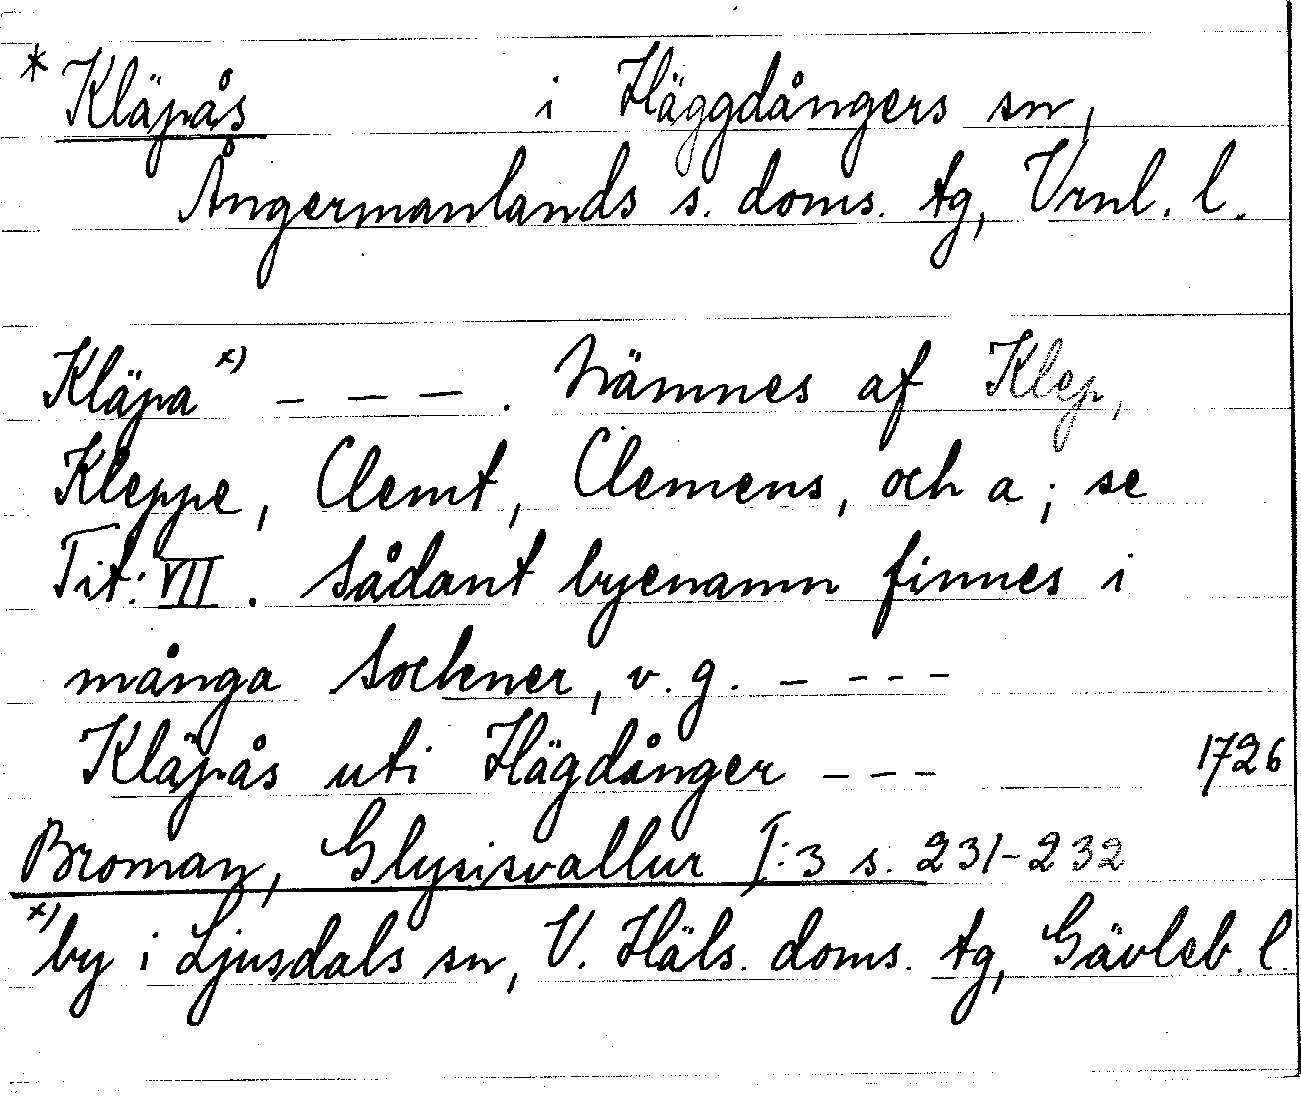 * Kläpås i Häggdångers sn,
Ångermanlands s. doms. tg, Vrnl. l.
Kläpa x) – – – . Nämnes af Klep,
Kleppe, Clemt, Clemens, och a; se
Tit: VII. Sådant byenamn finnes i
många Sochner, v. g. – – – –
Kläpås uti Hägdånger – – – 1726
Broman, Glysisvallur I:3 s. 231-232
x) by i Ljusdals sn, V. Häls. doms. tg, Gävleb. l.